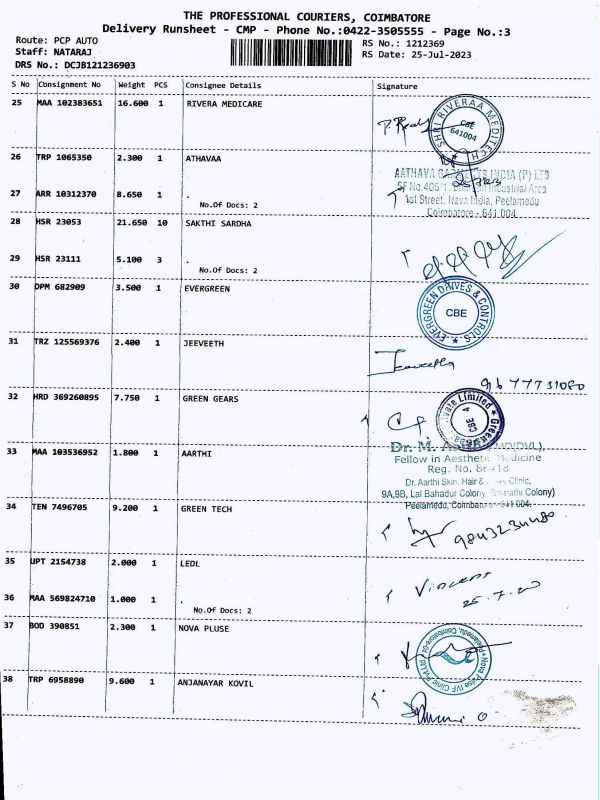 THE PROFESSIONAL COURIERS, COIMBATORE
Delivery Runsheet - CMP - Phone No.:0422-3505555 - Page No.:3
Route: PCP AUTO
Staff: NATARAJ
DRS No.: DCJB121236903
RS No.: 1212369
RS Date: 25-Jul-2023
S No Consignment No Weight PCS Consignee Details Signature
25 MAA 102383651 16.600 1 RIVERA MEDICARE
SHRI RIVERAA MEDITECH
CBE
641004
26 TRP 1065350 2.300 1 ATHAVAA
AATHAVA GARMENTS INDIA (P) LTD
SF No.405/1, Industrial Area
1st Street, Nava India, Peelamedu
Coimbatore - 641 004.
27 ARR 10312370 8.650 1 .
No.Of Docs: 2
28 HSR 23053 21.650 10 SAKTHI SARDHA
29 HSR 23111 5.100 3 .
No.Of Docs: 2
30 DPM 682909 3.500 1 EVERGREEN
EVERGREEN DRIVES & CONTROLS
CBE
31 TRZ 125569376 2.400 1 JEEVEETH
Jeeveetha
32 HRD 369260895 7.750 1 GREEN GEARS
33 MAA 103536952 1.800 1 AARTHI
Dr. M.
Fellow in Aesthetic Medicine
Dr. Aarthi Skin, Hair & Clinic,
9A,9B, Lal Bahadur Colony, Bharathi Colony)
Peelamedu, Coimbatore - 641 004.
34 TEN 7496705 9.200 1 GREEN TECH
35 UPT 2154738 2.000 1 LEDL
Vincent
36 MAA 569824710 1.000 1 .
No.Of Docs: 2
37 BOD 390851 2.300 1 NOVA PLUSE
38 TRP 6958890 9.600 1 ANJANAYAR KOVIL